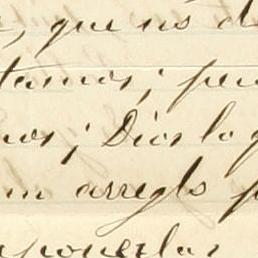 , que us d
tamos; per
nos; Dios lo q
un arreglo p
sponerlas